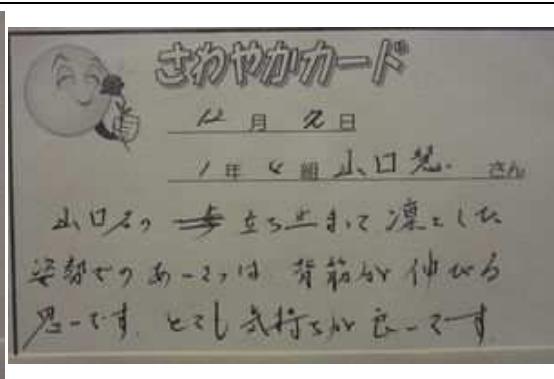 さわやかカード
12月2日
1年4組 山口 さん
山口君の 立ち止まって凛とした
姿勢でのあいさつは 背筋が伸びる
思いです。とても気持ちが良いです